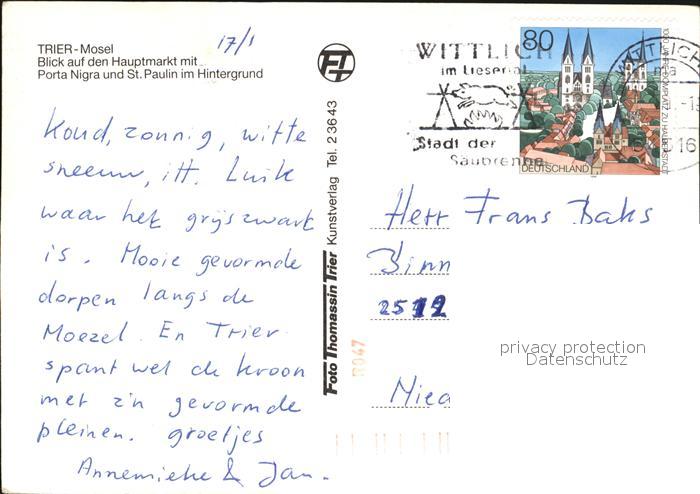 TRIER - Mosel
Blick auf den Hauptmarkt mit
Porta Nigra und St. Paulin im Hintergrund
17/1
Koud, zonnig, witte
sneeuw, itt. Luik
waar het grijszwart
is. Mooie gevormde
dorpen langs de
Moezel. En Trier
spant wel de kroon
met z'n gevormde
pleinen. groetjes
Annemieke & Jan.
Foto Thomassin Trier Kunstverlag Tel. 2 36 43
R047
WITTLICH
im Liesertal
Stadt der
Säubrenner
80
DEUTSCHLAND
WITTLICH
16
Herr Frans Baks
Binn
2512
Miea
privacy protection
Datenschutz